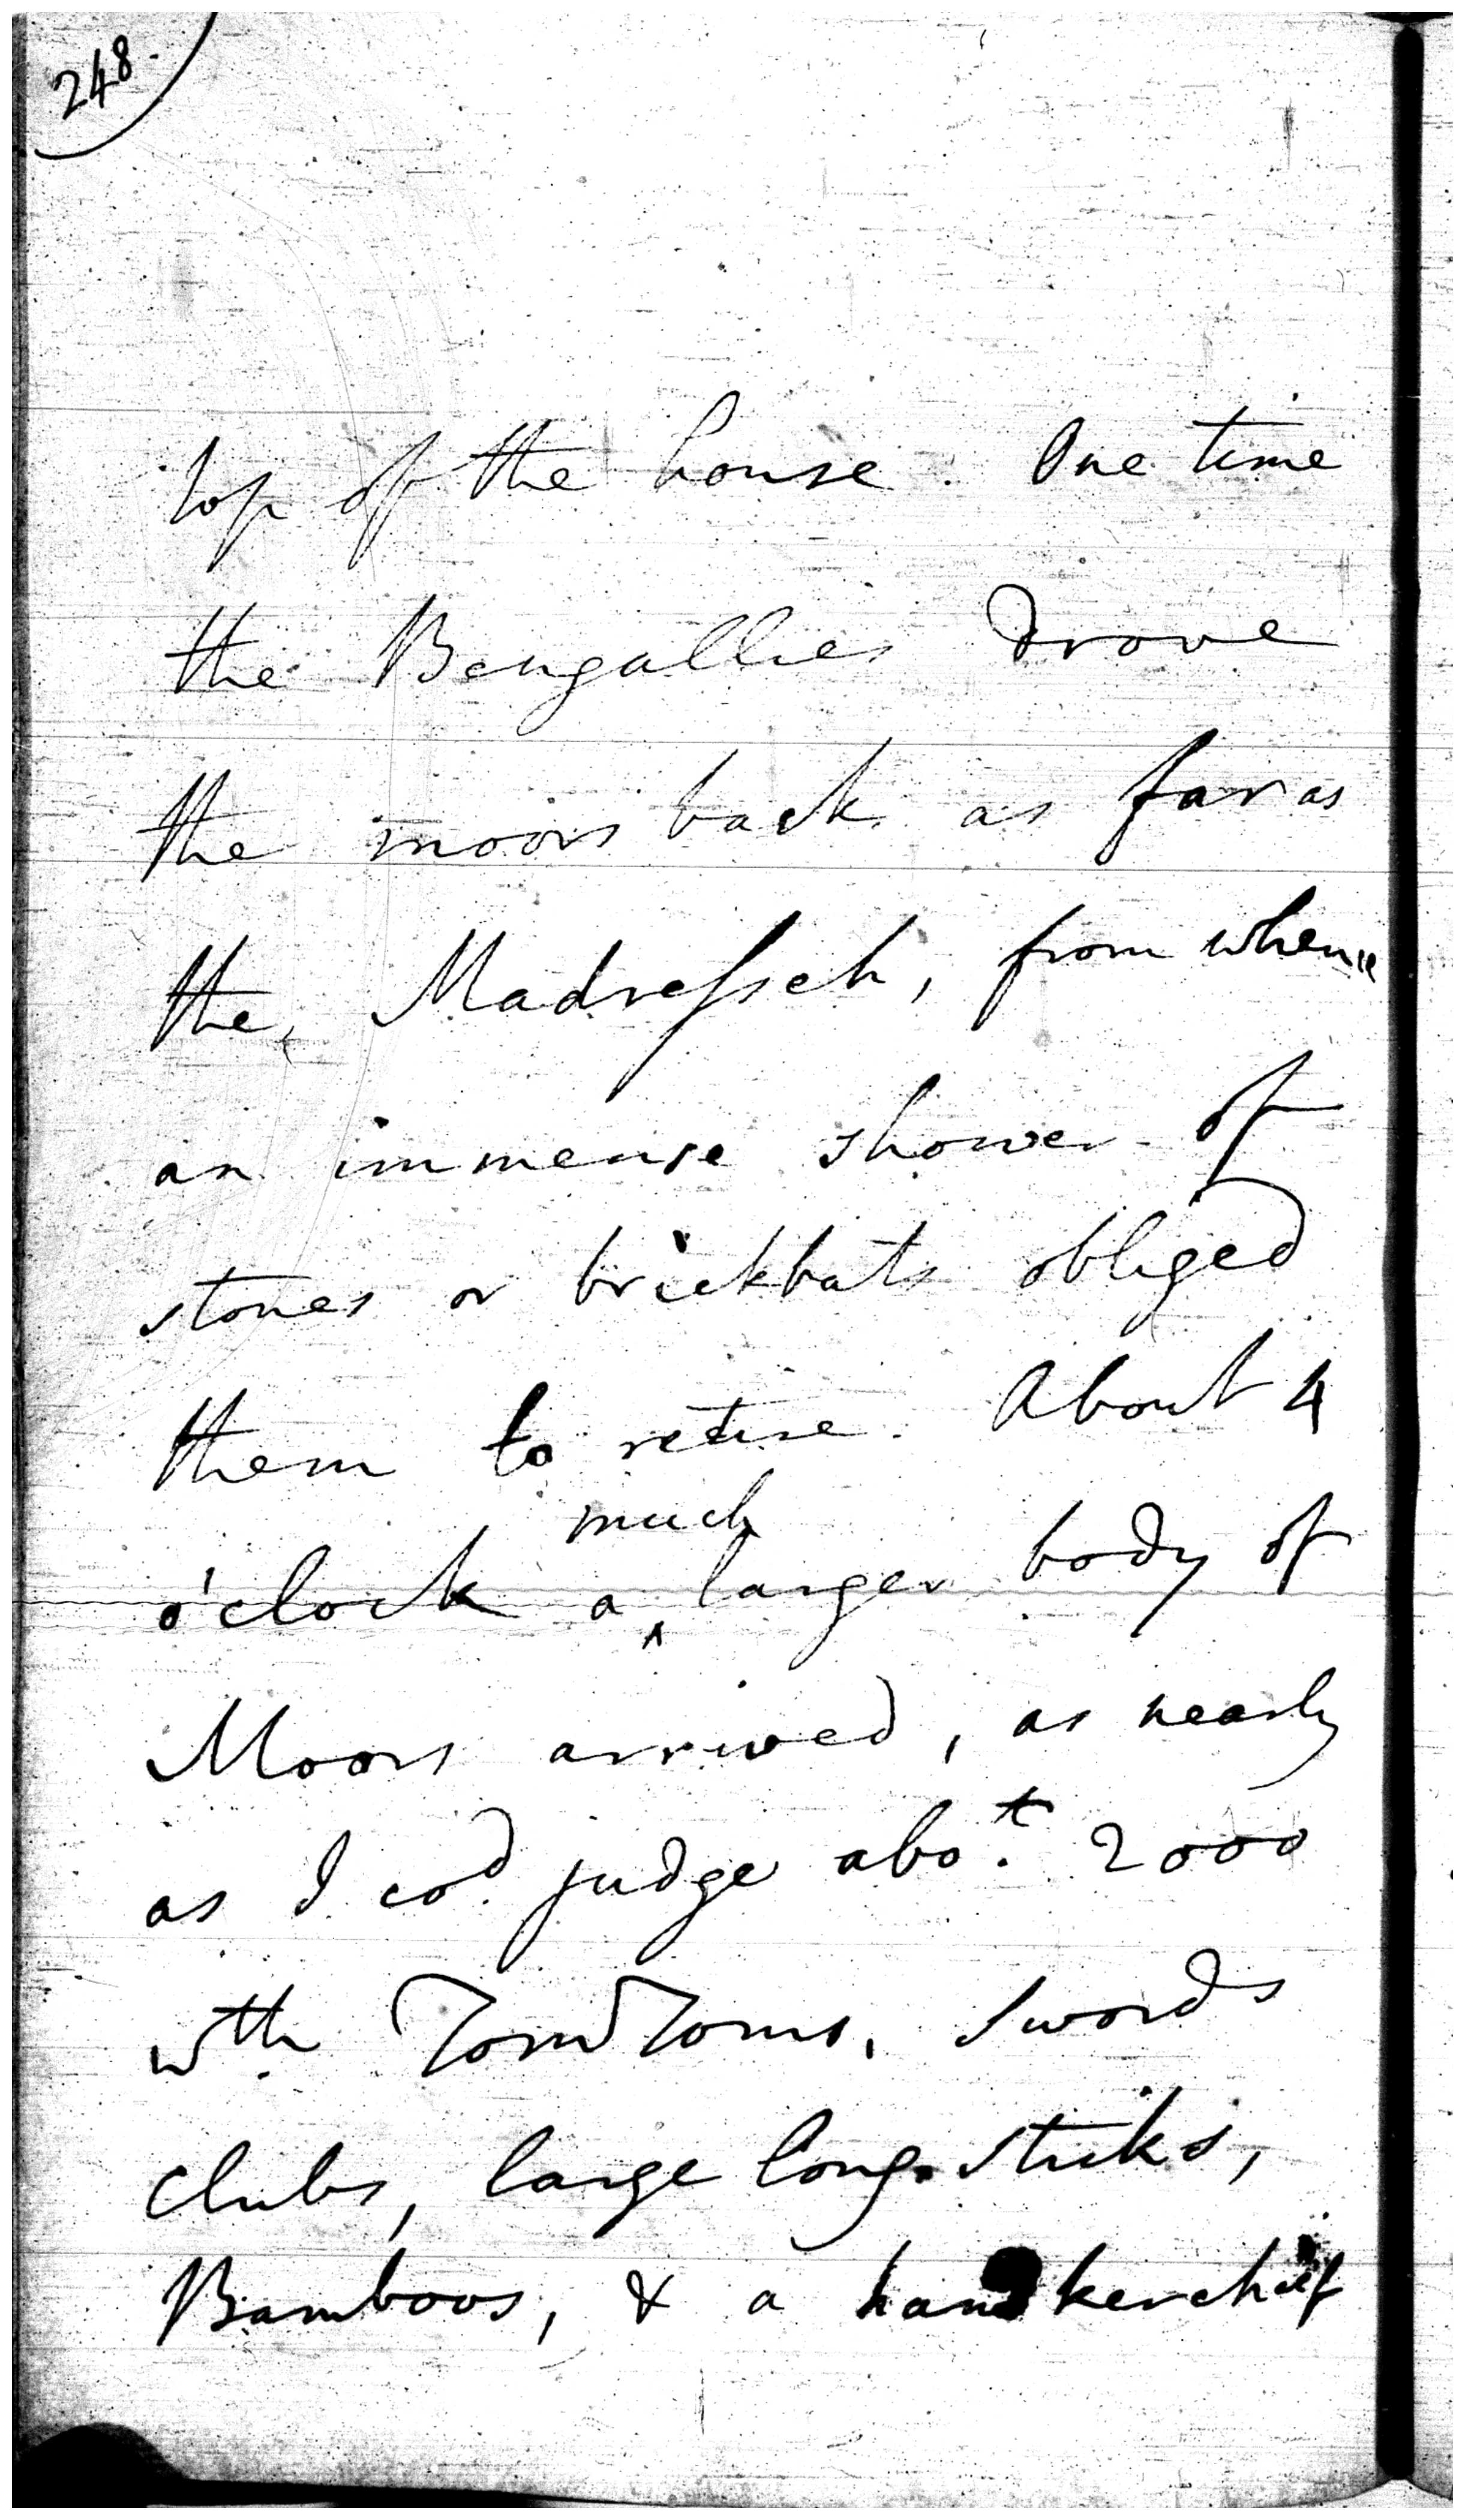 248.
top of the house. One time
the Bengallies drove
the moors back as far as
the Madresseh, from whence
an immense shower of
stones or brickbats obliged
them to retire. About 4
much
o'clock a ^ larger body of
Moors arrived, as nearly
as I cod judge abot. 2000
wth TomToms, swords
clubs, large long sticks,
Bamboos, & a handkerchief